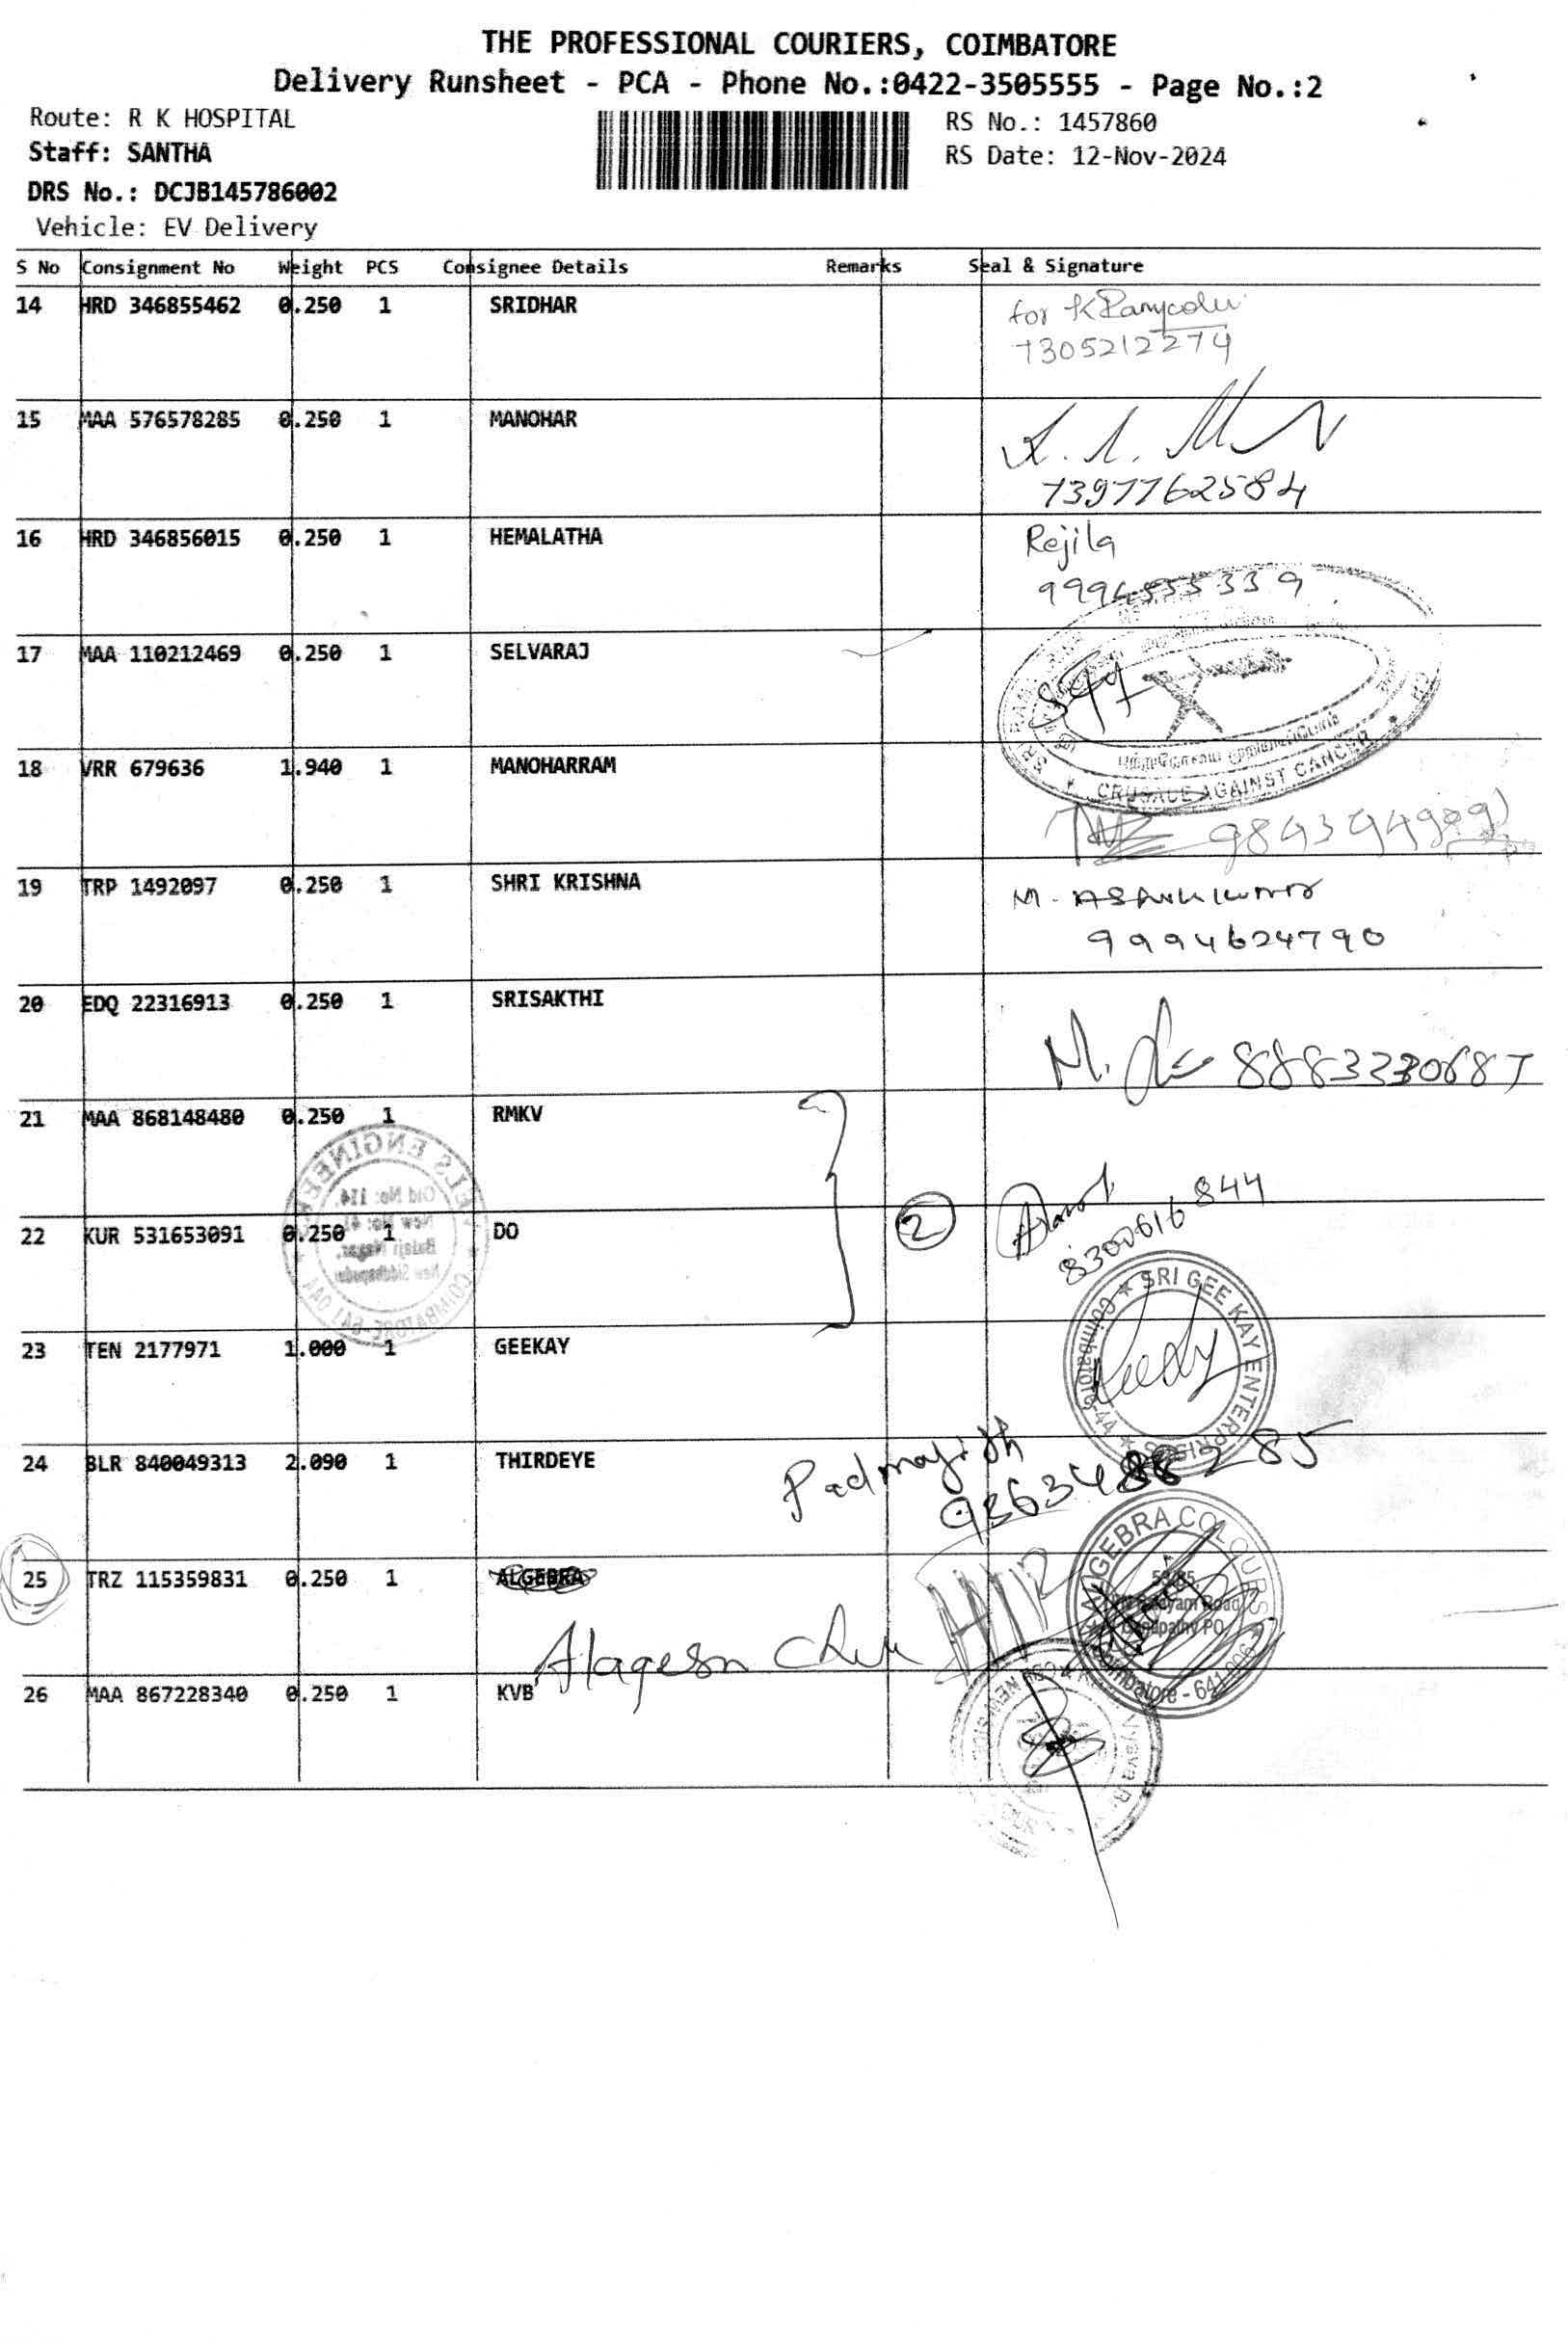 THE PROFESSIONAL COURIERS, COIMBATORE
Delivery Runsheet - PCA - Phone No.:0422-3505555 - Page No.:2
Route: R K HOSPITAL
RS No.: 1457860
Staff: SANTHA
RS Date: 12-Nov-2024
DRS No.: DCJB145786002
Vehicle: EV Delivery
S No Consignment No Weight PCS Consignee Details Remarks Seal & Signature
14 HRD 346855462 0.250 1 SRIDHAR for
7305212274
15 MAA 576578285 0.250 1 MANOHAR
7397762584
16 HRD 346856015 0.250 1 HEMALATHA Rejila
17 MAA 110212469 0.250 1 SELVARAJ
CRUSADE AGAINST CANCER
18 VRR 679636 1.940 1 MANOHARRAM
19 TRP 1492097 0.250 1 SHRI KRISHNA
9994624790
20 EDQ 22316913 0.250 1 SRISAKTHI
21 MAA 868148480 0.250 1 RMKV
22 KUR 531653091 0.250 1 DO 2
8300616844
23 TEN 2177971 1.000 1 GEEKAY
SRI GEE KAY ENTERPRISES Coimbatore-44
24 BLR 840049313 2.090 1 THIRDEYE
25 TRZ 115359831 0.250 1 ALGEBRA
ALGEBRA COLOURS
Coimbatore - 641 006
Alageson
26 MAA 867228340 0.250 1 KVB